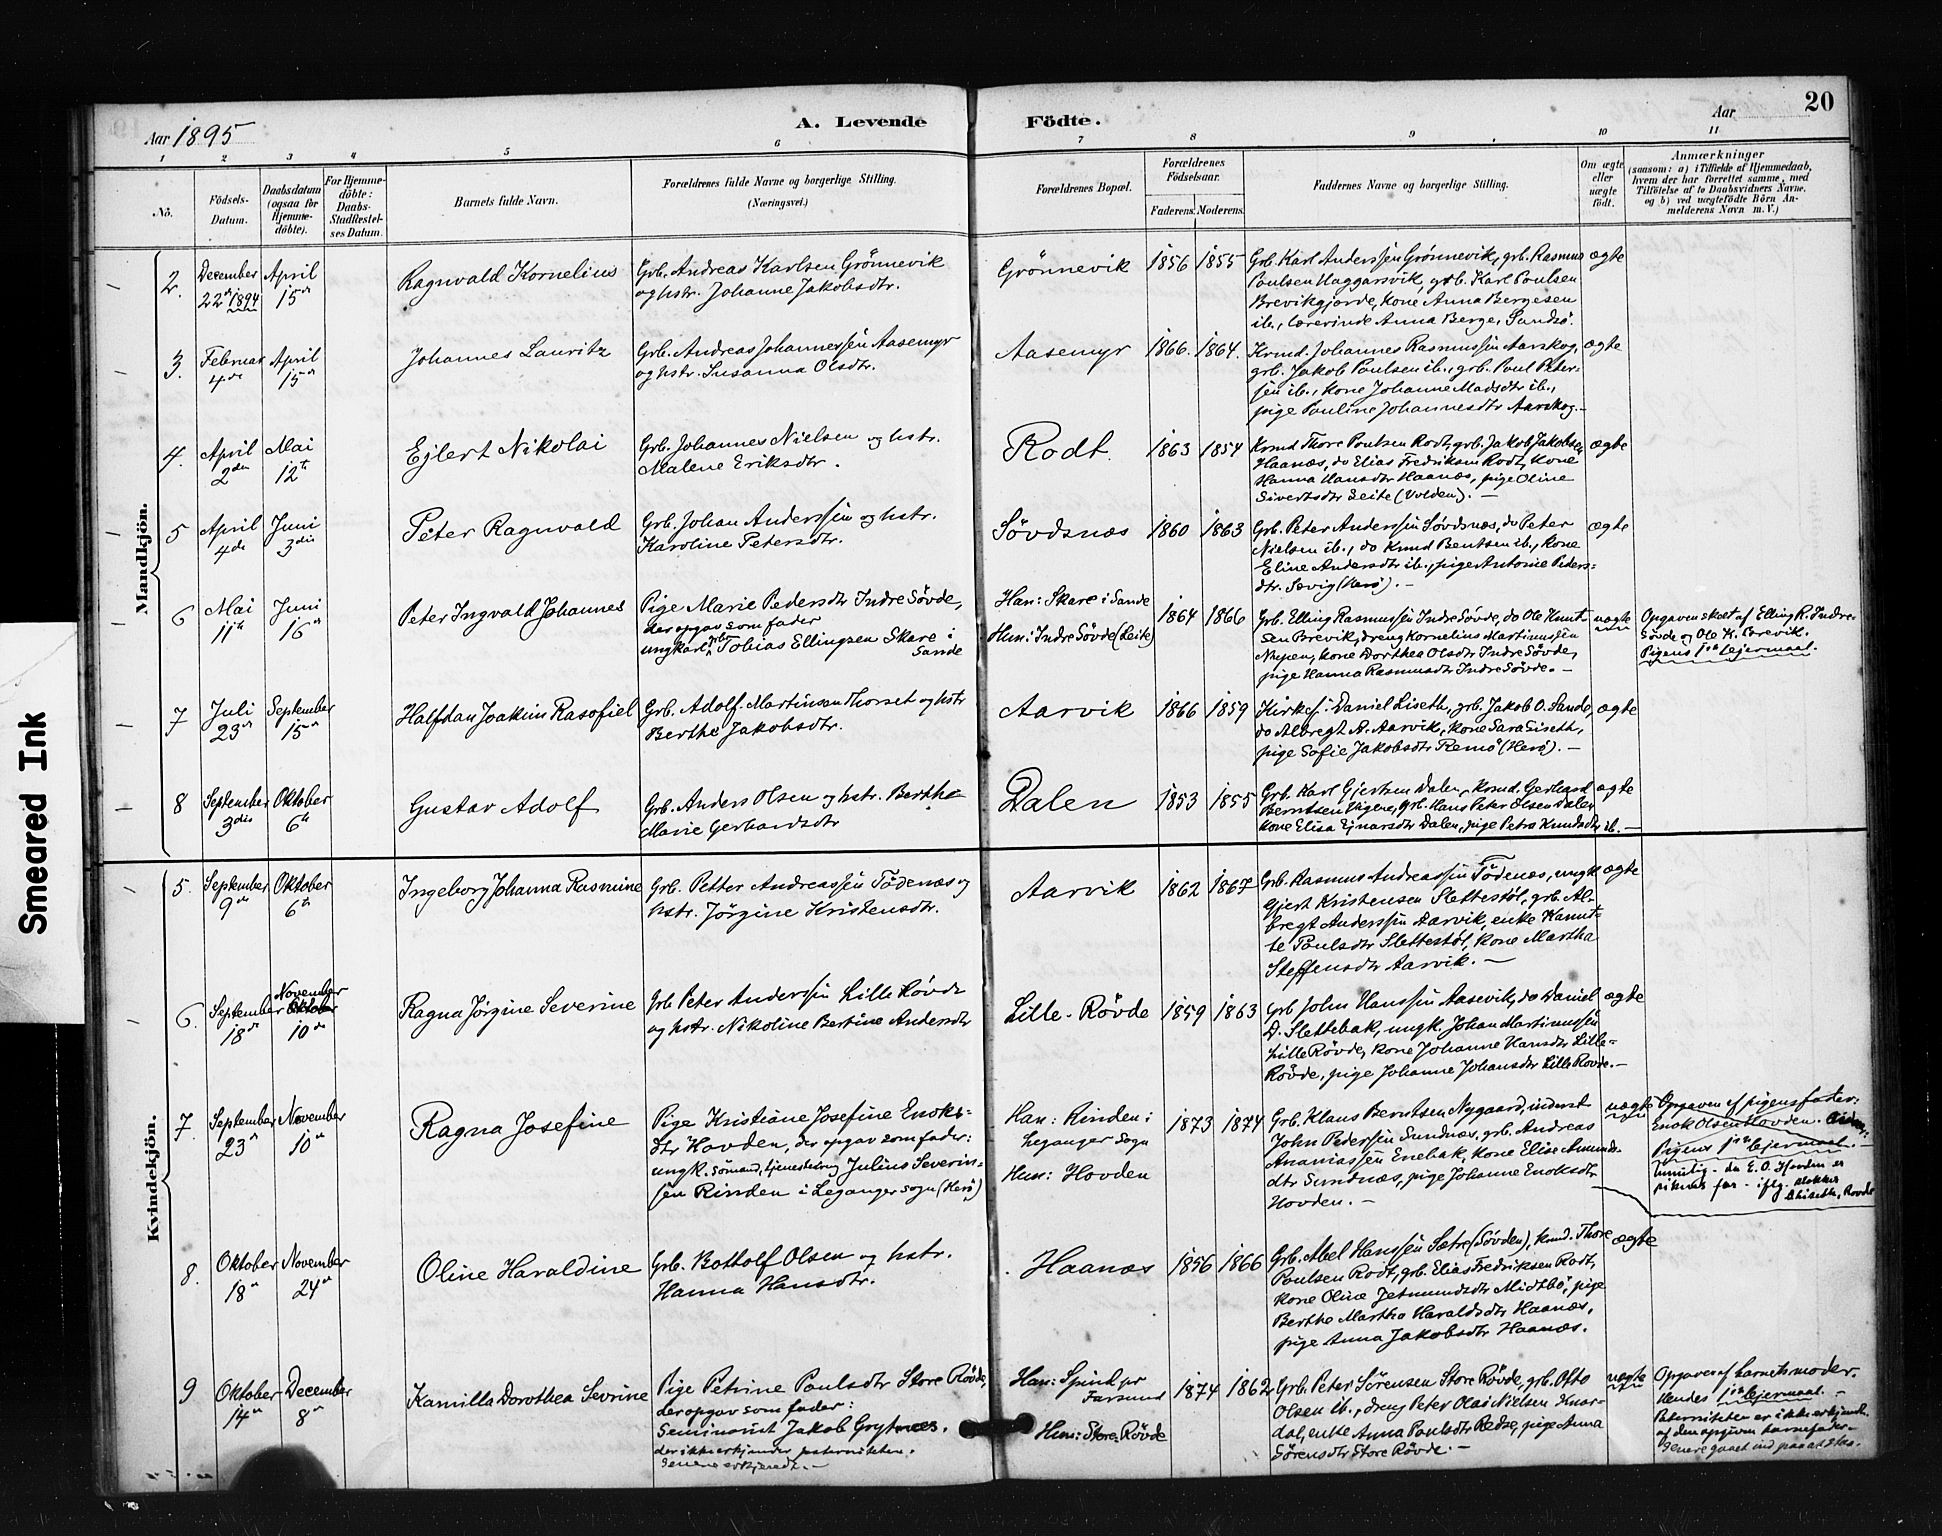 Smeared Ink
Aar 1895
A. Levende Fødte.
Aar
20
1 2 3 4 5 6 7 8 9 10 11
No.
Fødsels-Datum.
Daabsdatum (ogsaa for Hjemme-døbte).
For Hjemme-døbte: Daabs-Stadfæstel-ses Datum.
Barnets fulde Navn.
Forældrenes fulde Navne og borgerlige Stilling.
(Næringsvei.)
Forældrenes Bopæl.
Forældrenes Fødselsaar.
Faderens. Moderens.
Faddernes Navne og borgerlige Stilling.
Om ægte eller uægte født.
Anmærkninger
(saasom: a) i Tilfælde af Hjemmedaab, hvem der har forrettet samme, med Tilføielse af to Daabsvidners Navne. og b) ved uægtefødte Børn An-melderens Navn m. V.)
Mandkjøn.
2. December 22de 1894 April 15de Ragnvald Kornelius
Grb. Andreas Karlsen Grönnevik
og hstr. Johanne Jakobsdtr.
Grönnevik 1856 1855
Grb. Karl Anderssen Grønnevik, grb. Rasmus
Poulsen Haggarsvik, grb. Karl Poulsen
Brevikgjerde, kone Anna Bergesen
ib., lærerinde Anna Berge, Sandsö.
ægte
3. Februar 4de April 15de Johannes Lauritz
Grb. Andreas Johannessen Aasemyr
og hstr. Susanna Olsdtr.
Aasemyr 1866. 1864.
Krmd. Johannes Rasmussen Aarskog,
grb. Jakob Poulsen ib., grb. Poul Peter-
sen ib., kone Johanne Madsdtr ib.,
pige Pauline Johannesdtr Aarskog.-
ægte
4. April 2den Mai 12te Ejlert Nikolai
Grb. Johannes Nielsen og hstr.
Malene Eriksdtr.
Rodt. 1863 1854
Krmd Thore Poulsen Rodt, grb. Jakob Jakobsen
Haanæs, do Elias Fredriksen Rodt, kone
Hanna Hansdtr Haanæs, pige Oline
Sivertsdtr Leite (Volden). -
ægte
5 April 4de Juni 3die Peter Ragnvald
Grb. Johan Anderssen og hstr.
Karoline Petersdtr.
Søvdsnæs 1860 1863
Grb. Peter Anderssen Søvdsnæs, do Peter
Nielsen ib., do Knud Bentsen ib., kone
Eline Andersdtr ib., pige Antonie Peders-
dtr. Sævig (Herø). -
ægte
6 Mai 11te Juni 16de Peter Ingvald Johannes
Pige Marie Pedersdtr Indre Søvde,
der opgav som fader
ungkarl, grb. Tobias Ellingsen Skare i
Sande
Han: Skare i Sande
Hun: Indre Søvde (Leite)
1864 1866
Grb. Elling Rasmussen Indre Søvde, do Ole Knut-
sen Brevik, dreng Kornelius Martinussen
Nupen, kone Dorthea Olsdtr Indre Søvde,
pige Hanna Rasmusdtr Indre Søvde. -
uægte
Opgaven skeet af Elling R. Indre
Søvde og Ole K. Brevik.
Pigens 1ste lejermaal.
7 Juli 23de September 15de Halfdan Joakim Rasofiel
Grb. Adolf Martinsen Thorset og hstr
Berthe Jakobsdtr.
Aarvik 1866 1859
Kirkes: Daniel Liseth, grb. Jakob O. Sande,
do Albregt A. Aarvik, kone Sara Liseth,
pige Sofie Jakobsdtr Remø (Herø). -
ægte
8 September 3die Oktober 6te Gustav Adolf
Grb. Anders Olsen og hstr. Berthe
Marie Gerhardsdtr
Dalen 1853 1855
Grb. Karl Gjertsen Dalen, krmd. Gerhard
Berntsen Vigene, grb. Hans Peter Olsen Dalen
kone Elisa Ejnarsdtr Dalen, pige Petra Knudsdtr ib. -
ægte
Kvindekjøn.
5. September 9de Oktober 6te Ingeborg Johanna Rasmine
Grb. Petter Andreassen Tödenæs og
hstr. Jörgine Kristensdtr.
Aarvik 1862 1867
Grb. Rasmus Andreassen Tödenæs, ungk
Gjert Kristensen Slettestøl, grb. Al-
bregt Anderssen Aarvik, enke Kanut-
te Poulsdtr Slettestøl, kone Martha
Steffensdtr Aarvik. -
ægte
6. September 18de November Oktober 10de Ragna Jörgine Severine
Grb Peter Anderssen Lille Røvde
og hstr. Nikoline Bertine Andersdtr
Lille-Røvde 1859 1863
Grb John Hanssen Aasevik, do Daniel
D. Slettebak, ungk. Johan Martinussen
Lille Røvde, kone Johanne Hansdtr Lille-
Røvde, pige Johanne Johansdtr Lille Røvde. -
ægte
7. September 23de November 10de Ragna Josefine
Pige Kristiane Josefine Enoks-
dtr Hovden, der opgav som fader:
ungk. sömand, tjenestekarl Julius Severin-
sen Rinden i Leganger sogn (Herø)
Han: Rinden i
Leganger sogn
Hun: Hovden
1873 1874
Grb. Klaus Berntsen Nygaard, inderst
John Pederssen Sundnæs, grb. Andreas
Ananiassen Enebak, kone Elise Amunds-
dtr Sundnæs, pige Johanne Enoksdtr
Hovden. -
uægte
Opgaven af pigens fader:
Enok Olsen Hovden.
Pigens 1ste lejermaal. -
Umulig - da E. O. Hovden er
pikens far - iflg. klokker
Lliseth, Rovde
8. Oktober 18de November 24de Oline Haraldine
Grb. Bottolf Olsen og hstr.
Hanna Hansdtr.
Haanæs 1856 1866
Grb. Abel Hanssen Sætre (Søvden), krmd. Thore
Poulsen Rodt, grb. Elias Fredriksen Rodt,
kone Oline Jetmundsdtr Midtbö, pige
Berthe Martha Haraldsdtr Haanæs,
pige Anna Jakobsdtr Haanæs.
ægte
9 Oktober 14de December 8de Kamilla Dorothea Sevrine
Pige Petrine Poulsdtr Store Røvde,
der opgav som fader:
Seminarist Jakob Grytnæs.
der ikke erkjender paterniteten.
Senere erkjendt. -
Han: Spind pr
Farsund
Hun: Store Røvde
1874 1862
Grb. Peter Sörensen Store Røvde, grb. Otto
Olsen ib., dreng Peter Olai Nielsen Knar-
dal, enke Anna Poulsdtr Redse, pige Anna
Sörensdtr Store Røvde. -
uægte
Opgaven af barnets moder.
Hendes 1ste lejermaal. -
Paterniteten er ikke erkjendt
af den opgivne barnefader.
Senere gaaet ind paa at